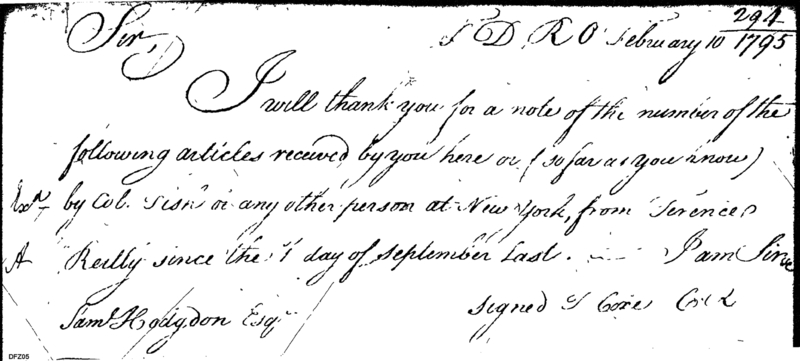 294
Sir, T D R O February 10 1795
I will thank you for a note of the number of the
following articles received by you here or (so far as you know)
Exd by Col. Fish or any other person at New York, from Terence
A Reilly since the 1 day of September last. I am Sir
Saml Hodgdon Esqr signed T Coxe
DFZ05